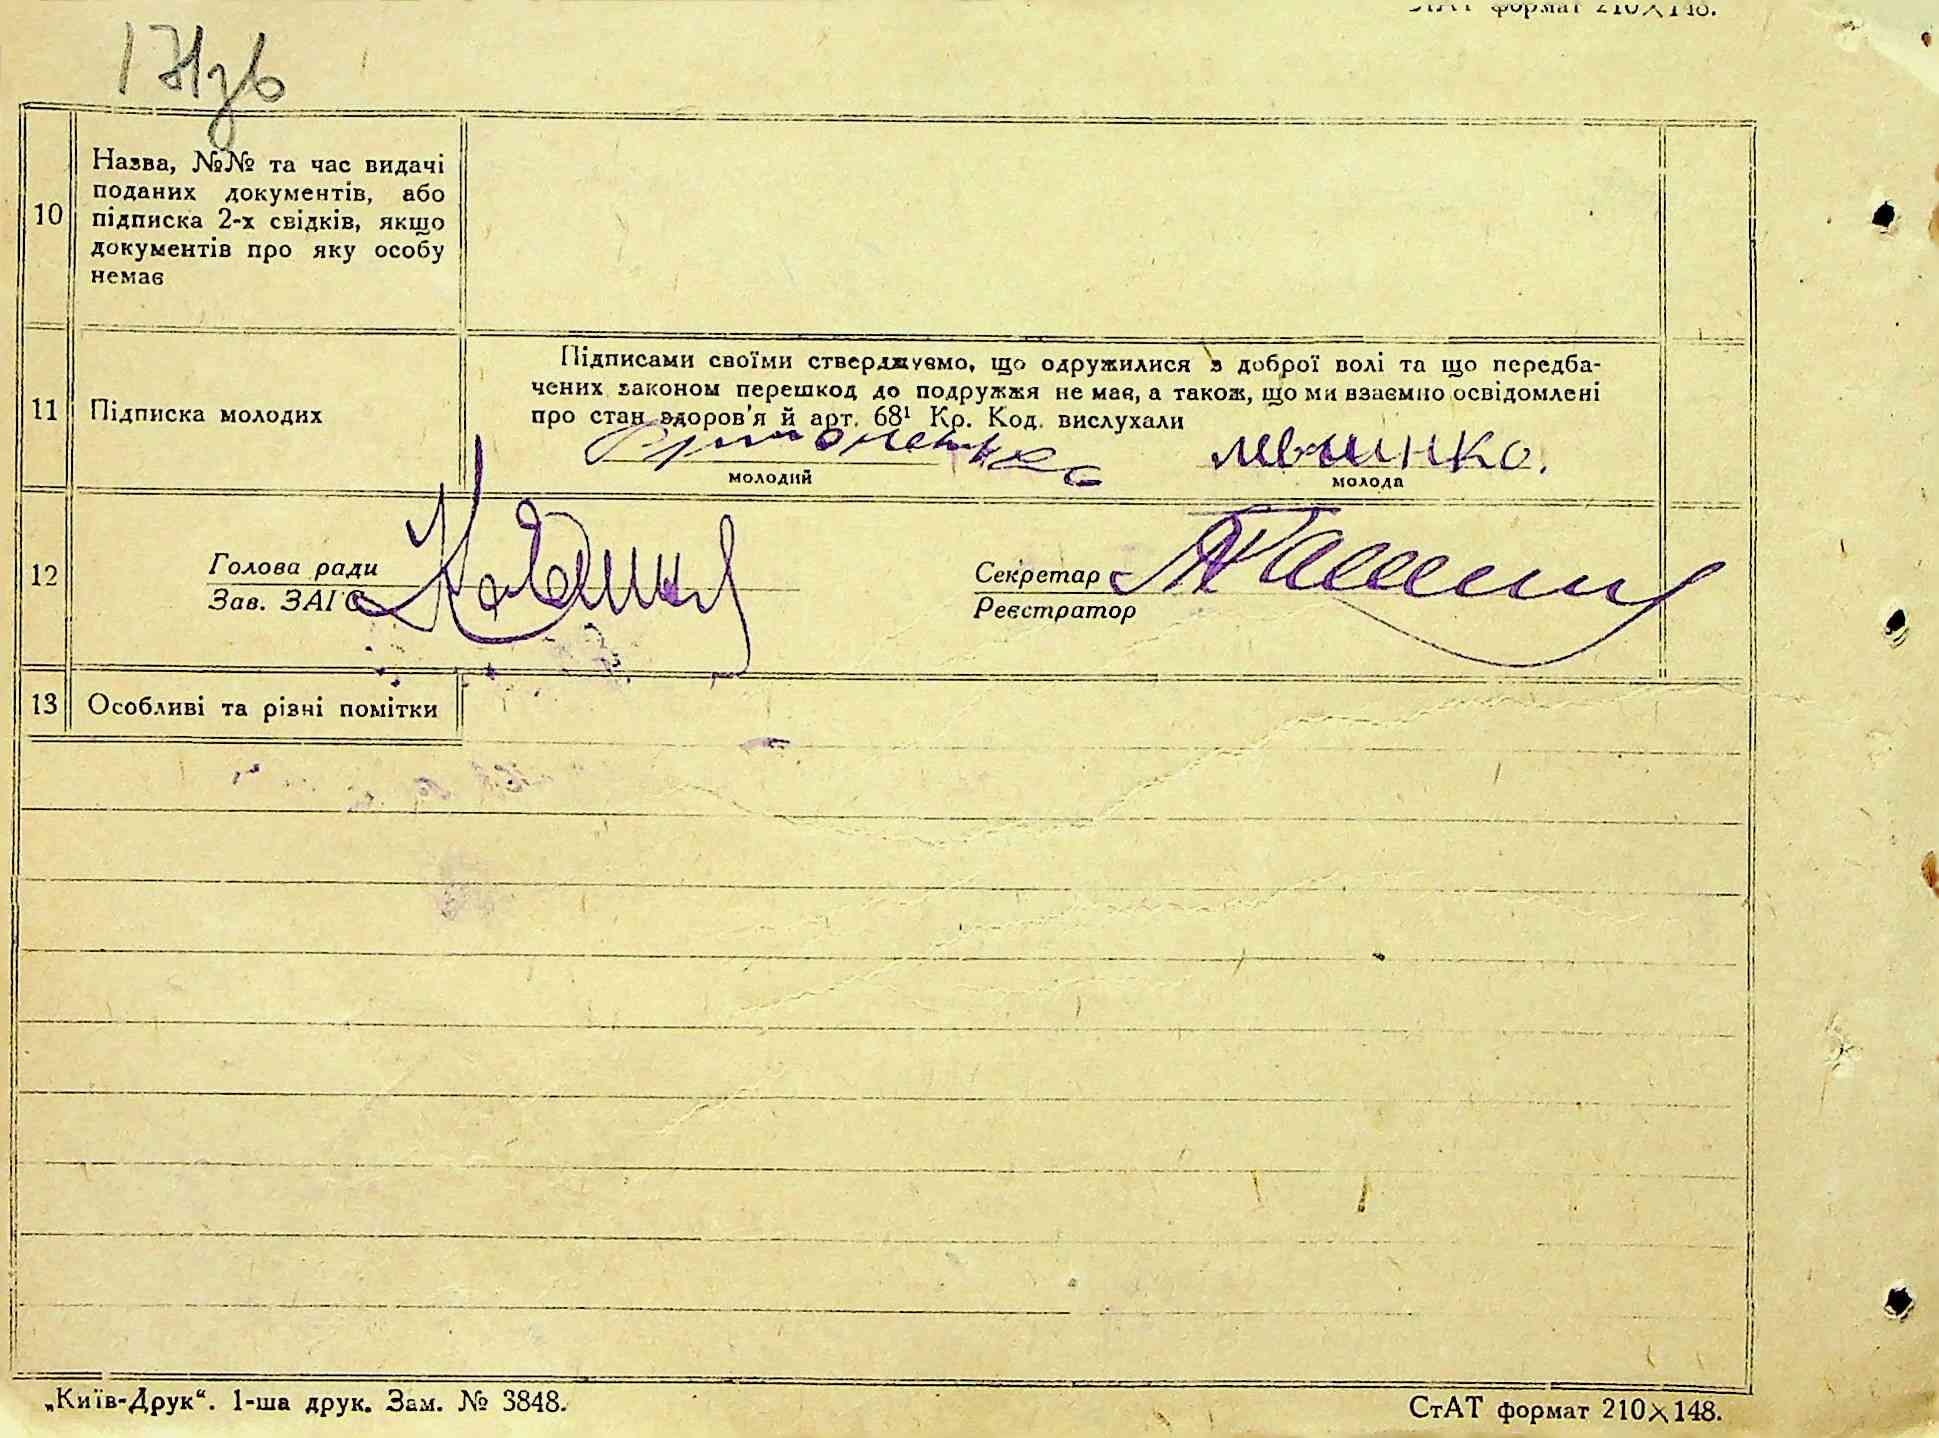 СтАТ формат 210×148.
10
Назва, №№ та час видачі
поданих документів, або
підписка 2-х свідків, якщо
документів про яку особу
немає
11
Підписка молодих
Підписами своїми стверджуємо, що одружилися з доброї волі та що передба-
чених законом перешкод до подружжя не має, а також, що ми взаємно освідомлені
про стан здоров'я й арт. 68¹ Кр. Код. вислухали
молодий
молода
12
Голова ради
Зав. ЗАГС
Секретар
Реєстратор
13
Особливі та різні помітки
„Київ-Друк“. 1-ша друк. Зам. № 3848.
СтАТ формат 210×148.